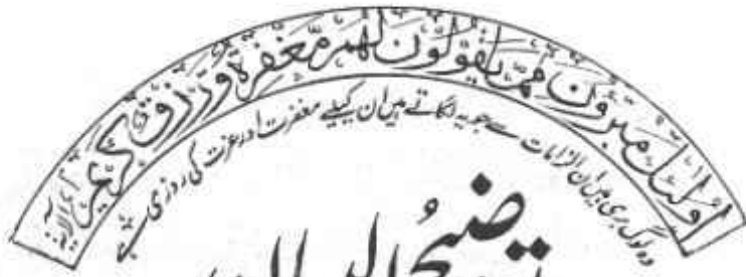 اُولٰٓئِكَ مُبَرَّءُوْنَ مِمَّا يَقُوْلُوْنَ لَهُمْ مَّغْفِرَةٌ وَّرِزْقٌ كَرِيْمٌ
وہ لوگ بری ہیں ان الزامات سے جو یہ لگاتے ہیں ان کیلئے مغفرت اور عزت کی روزی ہے